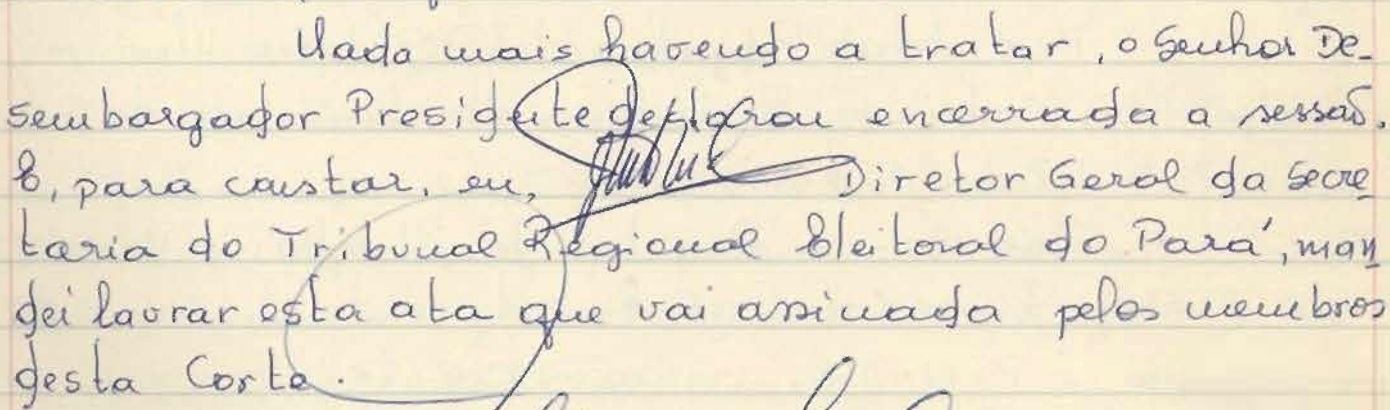 Nada mais havendo a tratar, o Senhor De-
sembargador Presidente declarou encerrada a sessão.
E, para constar, eu, Diretor Geral da Secre
taria do Tribunal Regional Eleitoral do Pará, man
dei lavrar esta ata que vai assinada pelos membros
desta Corte.